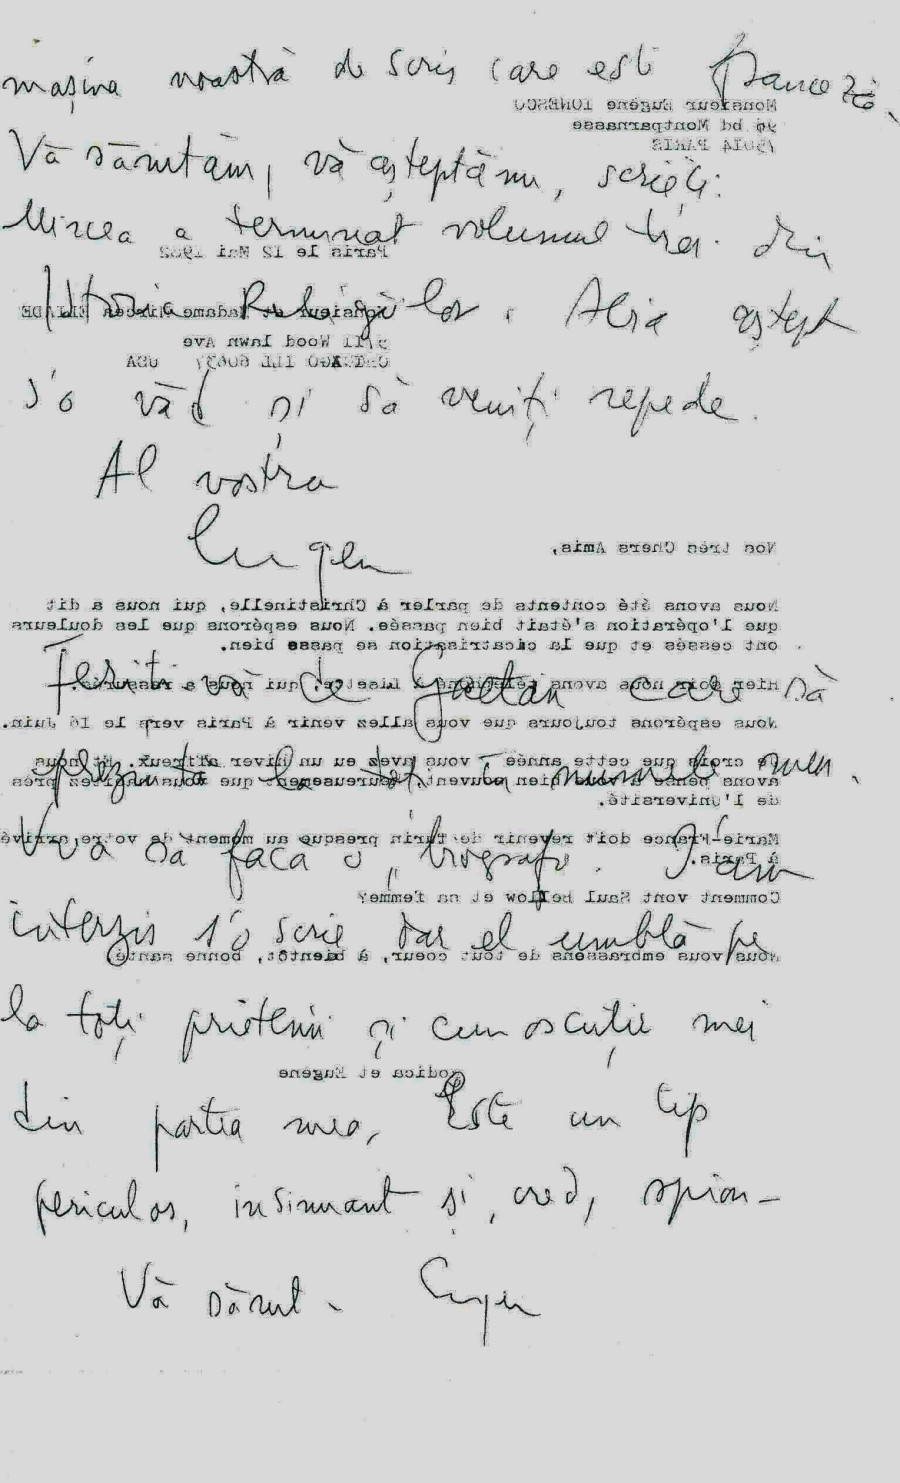 mașina noastră de scris care este franceză.
Monsieur Eugène IONESCO
96 bd Montparnasse
75014 PARIS
Vă sărutăm, vă așteptăm, scrieți.
Mircea a terminat volumul trei din
Paris le 12 Mai 1982
Istoria Religiilor. Abia aștept
Monsieur et Madame Mircea ELIADE
Wood Lawn Ave
CHICAGO ILL 60637 USA
s'o văd și să veniți repede.
Al vostru
Eugen
Nos très Chers Amis,
Nous avons été contents de parler à Christinelle, qui nous a dit
que l'opération s'était bien passée. Nous espérons que les douleurs
ont cessés et que la cicatrisation se passe bien.
Feriți-vă de Gaetan care să
Hier soir nous avons téléphoné à Lisette, qui nous a rassurés.
Nous espérons toujours que vous allez venir à Paris vers le 16 Juin.
prezintă la toți în numele meu.
que cette année vous avez eu un hiver affreux. Et nous
avons pensé bien souvent, heureusement que vous habitez près
de l'Université.
Marie-France doit revenir de Turin presque au moment de votre arrivée
à Paris.
Vrea să facă o biografie. I-am
Comment vont Saul Bellow et sa femme?
interzis s'o scrie dar el umblă pe
Nous vous embrassons de tout coeur, à bientôt, bonne santé
la toți prietenii și cunoscuții mei
Rodica et Eugène
din partea mea, Este un tip
periculos, insinuant și, cred, spion -
Vă sărut - Eugen